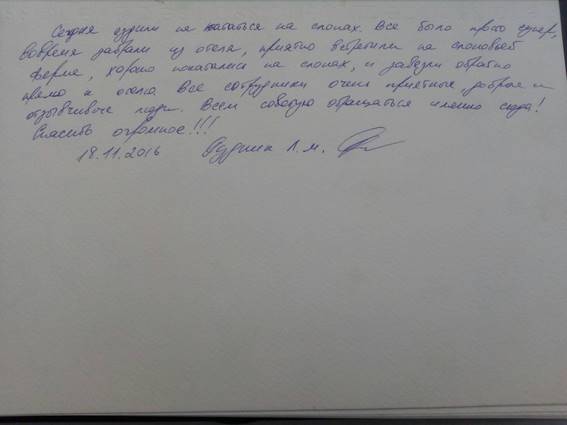 Сегодня ездили на кататься на слонах. Все было просто супер,
вовремя забрали из отеля, приятно встретили на слоновьей
ферме, хорошо покатались на слонах, и завезли обратно
прямо к отелю. Все сотрудники очень приятные, добрые и
отзывчивые люди. Всем советую обращаться именно сюда!
Спасибо огромное!!!
18.11.2016 Л.М.